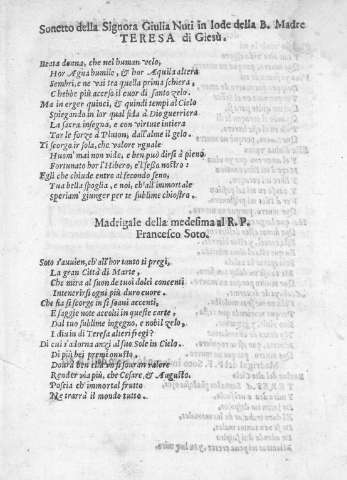 Sonetto della Signora Giulia Nuti in lode della B. Madre
TERESA di Giesù.
Beata donna, che nel human velo,
Hor Agna humile, & hor Aquila altera
Sembri, e ne vai tra quella prima schiera,
C'hebbe più acceso il cuor di santo zelo.
Ma in erger quinci, & quindi tempi al Cielo
Spiegando in lor qual fida à Dio guerriera
La sacra insegna, e con virtute intiera
Tor le forze à Pluton, dall'alme il gelo.
Ti scorgo ir sola, che valore uguale
Huom' mai non vide, e ben può dirsi à pieno
Fortunato hor l'Hibero, e l'esta nostro:
Egli che chiude entro al fecondo seno,
Tua bella spoglia, e noi, ch'all'immortale
speriam' giunger per te sublime chiostro.
Madrigale della medesima al R. P.
Francesco Soto.
Soto s'avvien, ch'all'hor tanto ti pregi,
La gran Città di Marte,
Che mira al suon de tuoi dolci concenti
Intenerirsi ogni più duro cuore.
Che fia si scorge in sì soavi accenti,
E saggie note accolti in queste carte,
Dal tuo sublime ingegno, e nobil zelo,
I divin di Teresa alteri fregi?
Di cui s'adorna anzi al suo Sole in Cielo.
Di più bei premi onusto,
Dourà ben ella vosi souran valore
Render via più, che Cesare, & Augusto.
Poscia ch'immortal frutto
Ne trarrà il mondo tutto.